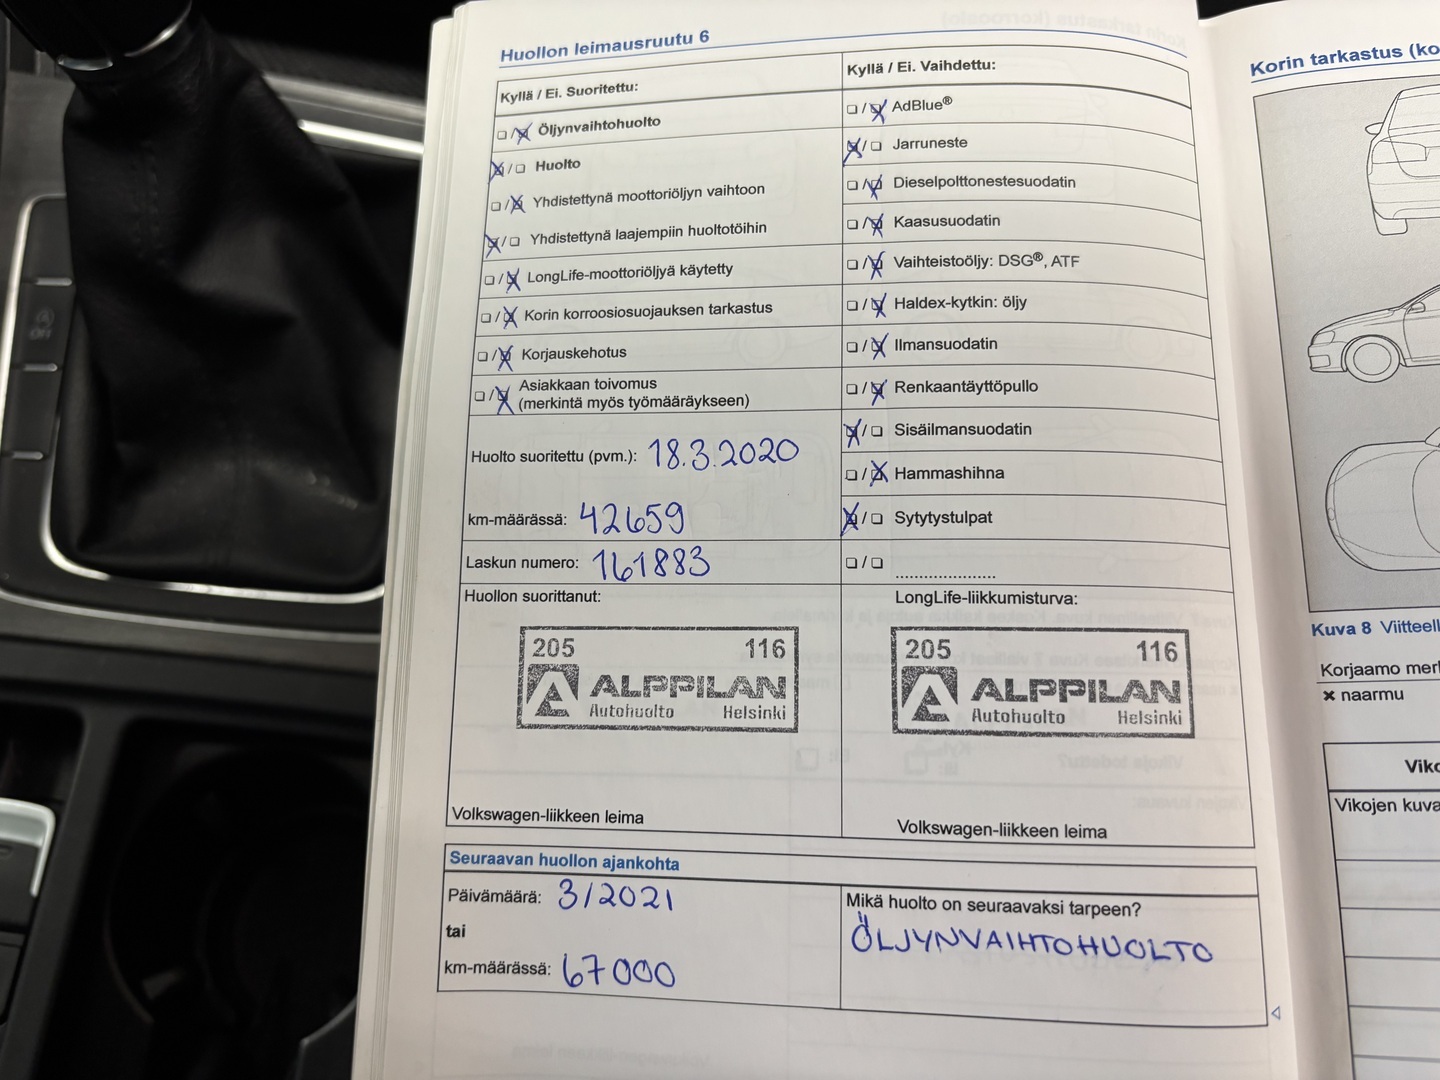 Huollon leimausruutu 6
Kyllä / Ei. Suoritettu:
Öljynvaihtohuolto
Huolto
Yhdistettynä moottoriöljyn vaihtoon
Yhdistettynä laajempiin huoltotöihin
LongLife-moottoriöljyä käytetty
Korin korroosiosuojauksen tarkastus
Korjauskehotus
Asiakkaan toivomus
(merkintä myös työmääräykseen)
Huolto suoritettu (pvm.): 18.3.2020
km-määrässä: 42659
Laskun numero: 161883
Huollon suorittanut:
205 116
ALPPILAN
Autohuolto Helsinki
Volkswagen-liikkeen leima
Kyllä / Ei. Vaihdettu:
AdBlue®
Jarruneste
Dieselpolttonestesuodatin
Kaasusuodatin
Vaihteistoöljy: DSG®, ATF
Haldex-kytkin: öljy
Ilmansuodatin
Renkaantäyttöpullo
Sisäilmansuodatin
Hammashihna
Sytytystulpat
.....................
LongLife-liikkumisturva:
205 116
ALPPILAN
Autohuolto Helsinki
Volkswagen-liikkeen leima
Seuraavan huollon ajankohta
Päivämäärä: 3/2021
tai
km-määrässä: 67000
Mikä huolto on seuraavaksi tarpeen?
ÖLJYNVAIHTOHUOLTO
Korin tarkastus (ko
Kuva 8 Viitteell
Korjaamo merk
× naarmu
Viko
Vikojen kuva